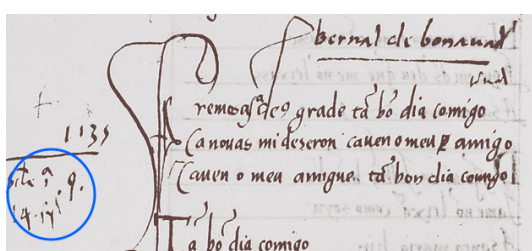 bernal de bonaual
1135
remosas a de9 grade tā bō dia comigo
Ca nouas mi deseron ca uen o meu p amigo
Ca uen o meu amigue tā bon dia comigo
Ta bō dia comigo